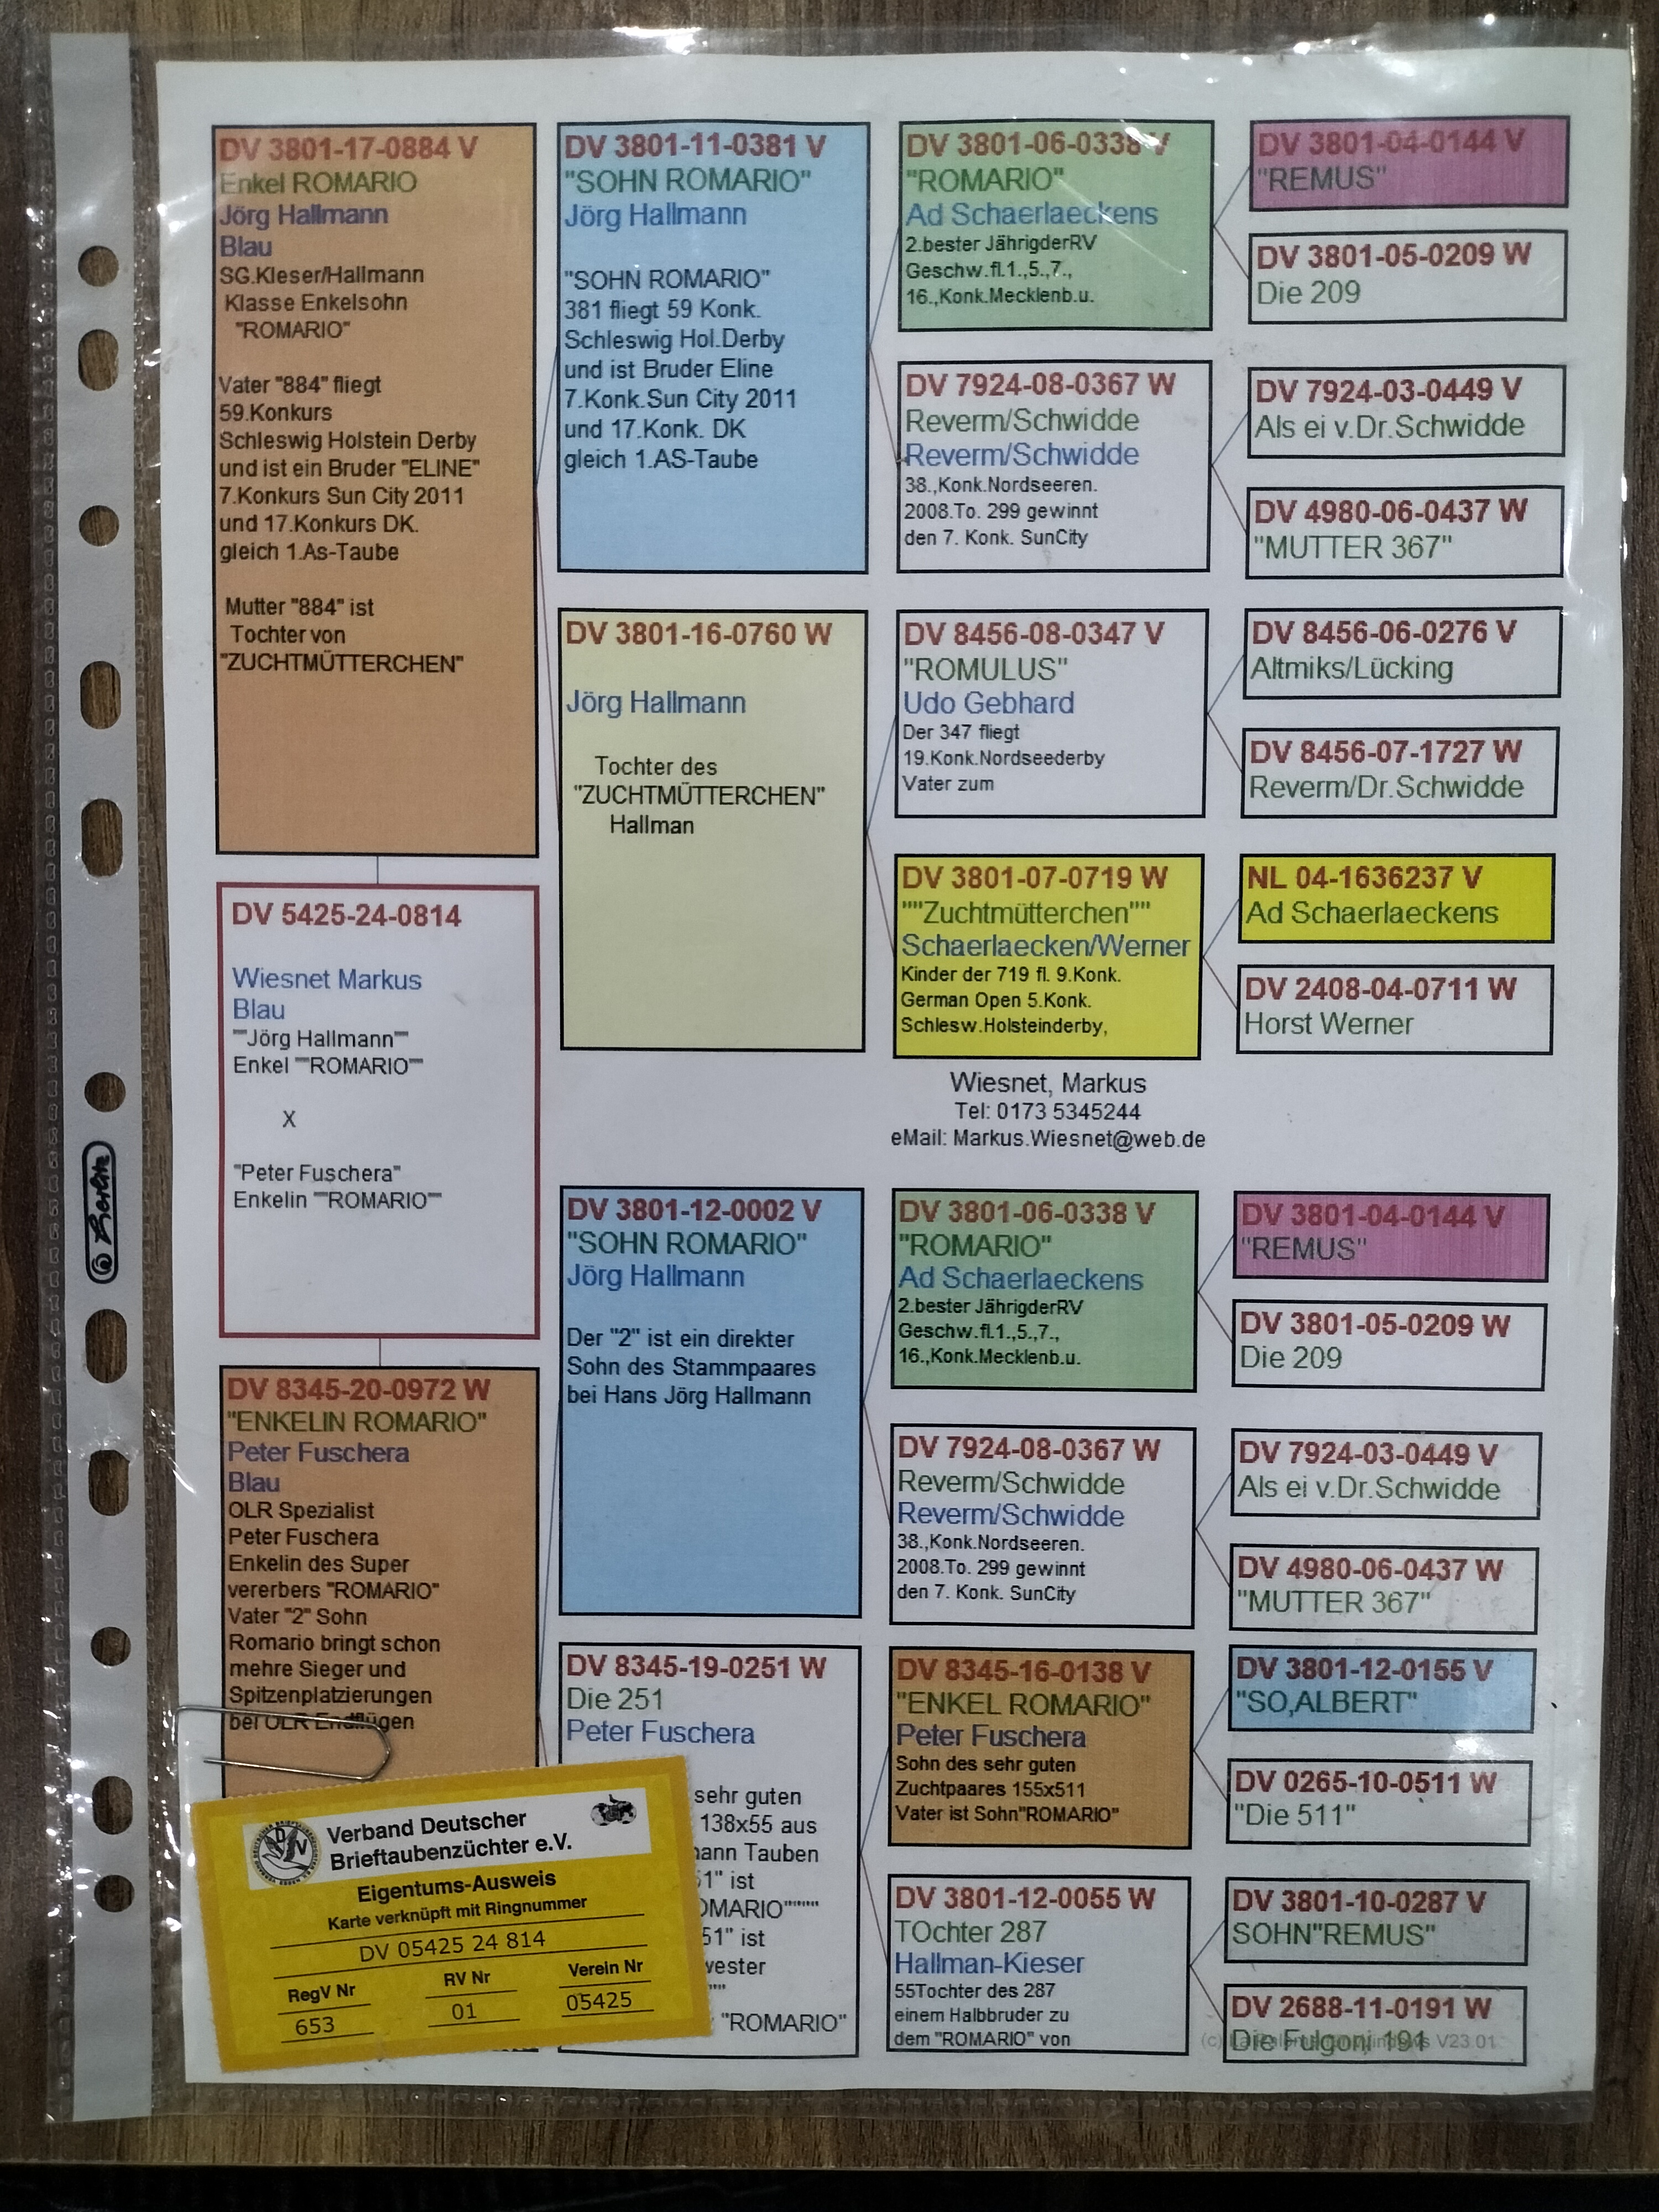 DV 3801-17-0884 V
Enkel ROMARIO
Jörg Hallmann
Blau
SG.Kleser/Hallmann
Klasse Enkelsohn
"ROMARIO"
Vater "884" fliegt
59.Konkurs
Schleswig Holstein Derby
und ist ein Bruder "ELINE"
7.Konkurs Sun City 2011
und 17.Konkurs DK.
gleich 1.As-Taube
Mutter "884" ist
Tochter von
"ZUCHTMÜTTERCHEN"
DV 5425-24-0814
Wiesnet Markus
Blau
""Jörg Hallmann""
Enkel ""ROMARIO""
X
"Peter Fuschera"
Enkelin ""ROMARIO""
DV 8345-20-0972 W
"ENKELIN ROMARIO"
Peter Fuschera
Blau
OLR Spezialist
Peter Fuschera
Enkelin des Super
vererbers "ROMARIO"
Vater "2" Sohn
Romario bringt schon
mehre Sieger und
Spitzenplatzierungen
bei OLR Endflügen
DV 3801-11-0381 V
"SOHN ROMARIO"
Jörg Hallmann
"SOHN ROMARIO"
381 fliegt 59 Konk.
Schleswig Hol.Derby
und ist Bruder Eline
7.Konk.Sun City 2011
und 17.Konk. DK
gleich 1.AS-Taube
DV 3801-16-0760 W
Jörg Hallmann
Tochter des
"ZUCHTMÜTTERCHEN"
Hallman
DV 3801-12-0002 V
"SOHN ROMARIO"
Jörg Hallmann
Der "2" ist ein direkter
Sohn des Stammpaares
bei Hans Jörg Hallmann
DV 8345-19-0251 W
Die 251
Peter Fuschera
sehr guten
138x55 aus
Tauben
ist
ist
"ROMARIO"
DV 3801-06-0338 V
"ROMARIO"
Ad Schaerlaeckens
2.bester JährigderRV
Geschw.fl.1.,5.,7.,
16.,Konk.Mecklenb.u.
DV 7924-08-0367 W
Reverm/Schwidde
Reverm/Schwidde
38.,Konk.Nordseeren.
2008.To. 299 gewinnt
den 7. Konk. SunCity
DV 8456-08-0347 V
"ROMULUS"
Udo Gebhard
Der 347 fliegt
19.Konk.Nordseederby
Vater zum
DV 3801-07-0719 W
""Zuchtmütterchen""
Schaerlaecken/Werner
Kinder der 719 fl. 9.Konk.
German Open 5.Konk.
Schlesw.Holsteinderby,
Wiesnet, Markus
Tel: 0173 5345244
eMail: Markus.Wiesnet@web.de
DV 3801-06-0338 V
"ROMARIO"
Ad Schaerlaeckens
2.bester JährigderRV
Geschw.fl.1.,5.,7.,
16.,Konk.Mecklenb.u.
DV 7924-08-0367 W
Reverm/Schwidde
Reverm/Schwidde
38.,Konk.Nordseeren.
2008.To. 299 gewinnt
den 7. Konk. SunCity
DV 8345-16-0138 V
"ENKEL ROMARIO"
Peter Fuschera
Sohn des sehr guten
Zuchtpaares 155x511
Vater ist Sohn"ROMARIO"
DV 3801-12-0055 W
TOchter 287
Hallman-Kieser
55Tochter des 287
einem Halbbruder zu
dem "ROMARIO" von
DV 3801-04-0144 V
"REMUS"
DV 3801-05-0209 W
Die 209
DV 7924-03-0449 V
Als ei v.Dr.Schwidde
DV 4980-06-0437 W
"MUTTER 367"
DV 8456-06-0276 V
Altmiks/Lücking
DV 8456-07-1727 W
Reverm/Dr.Schwidde
NL 04-1636237 V
Ad Schaerlaeckens
DV 2408-04-0711 W
Horst Werner
DV 3801-04-0144 V
"REMUS"
DV 3801-05-0209 W
Die 209
DV 7924-03-0449 V
Als ei v.Dr.Schwidde
DV 4980-06-0437 W
"MUTTER 367"
DV 3801-12-0155 V
"SO,ALBERT"
DV 0265-10-0511 W
"Die 511"
DV 3801-10-0287 V
SOHN"REMUS"
DV 2688-11-0191 W
Die Fulgoni 191
V23.01
Verband Deutscher
Brieftaubenzüchter e.V.
Eigentums-Ausweis
Karte verknüpft mit Ringnummer
DV 05425 24 814
RegV Nr RV Nr Verein Nr
653 01 05425
Herlitz